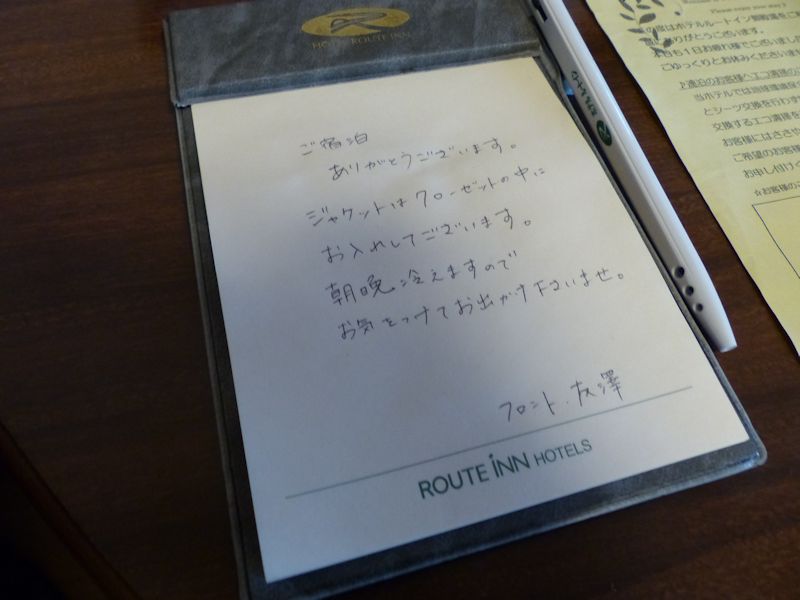 HOTEL ROUTE INN
ご宿泊
ありがとうございます。
ジャケットはクローゼットの中に
お入れしてございます。
朝晩冷えますので
お気をつけてお出かけ下さいませ。
フロント.友澤
ROUTE INN HOTELS
ありがとうございます。
ごゆっくりとお休みください
連泊のお客様へエコ清掃の
当ホテルでは地球環境保
とシーツ交換を行わ
交換するエコ清掃を
お客様にはささ
ご希望のお客様
お申し付けく
☆お客様のご